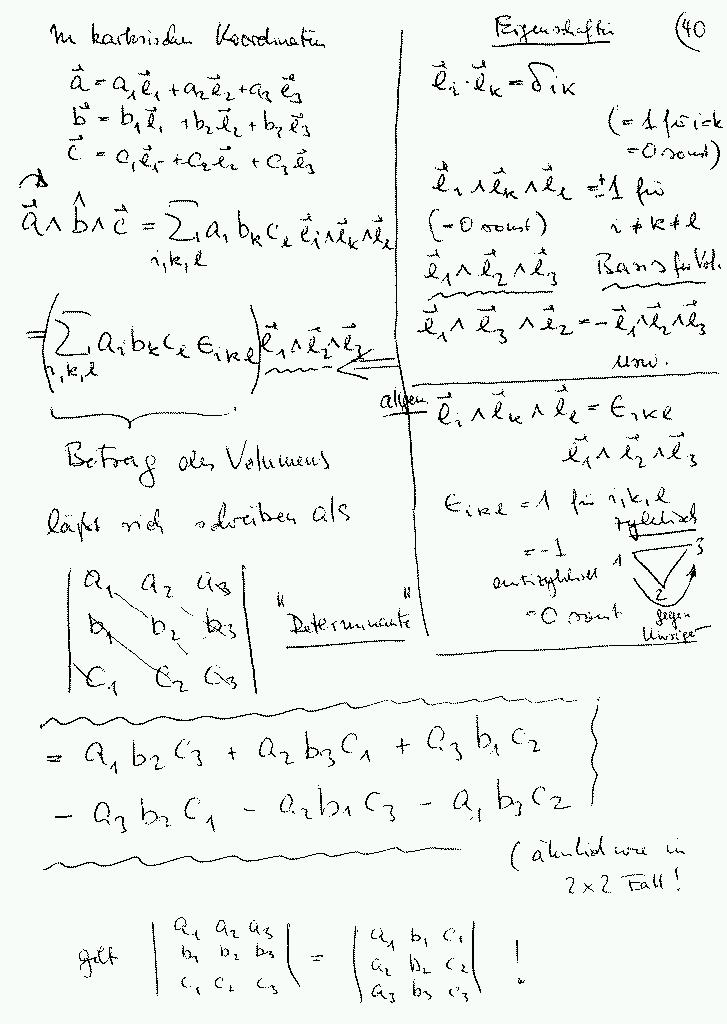 In kartesischen Koordinaten
a⃗ = a₁e⃗₁ + a₂e⃗₂ + a₃e⃗₃
b⃗ = b₁e⃗₁ + b₂e⃗₂ + b₃e⃗₃
c⃗ = c₁e⃗₁ + c₂e⃗₂ + c₃e⃗₃
a⃗ ∧ b⃗ ∧ c⃗ = ∑ aᵢ bₖ cₗ e⃗ᵢ ∧ e⃗ₖ ∧ e⃗ₗ
i,k,l
= (∑ aᵢ bₖ cₗ ϵᵢₖₗ) e⃗₁ ∧ e⃗₂ ∧ e⃗₃
i,k,l
Betrag des Volumens
läßt sich schreiben als
| a₁ a₂ a₃ |
| b₁ b₂ b₃ | "Determinante"
| c₁ c₂ c₃ |
Eigenschaften
(40
e⃗ᵢ · e⃗ₖ = δᵢₖ
(= 1 für i=k
= 0 sonst)
e⃗ᵢ ∧ e⃗ₖ ∧ e⃗ₗ = ±1 für
(= 0 sonst) i ≠ k ≠ l
e⃗₁ ∧ e⃗₂ ∧ e⃗₃ Basis für Vol.
e⃗₁ ∧ e⃗₃ ∧ e⃗₂ = − e⃗₁ ∧ e⃗₂ ∧ e⃗₃
usw.
allgem. e⃗ᵢ ∧ e⃗ₖ ∧ e⃗ₗ = ϵᵢₖₗ
e⃗₁ ∧ e⃗₂ ∧ e⃗₃
ϵᵢₖₗ = 1 für i,k,l
zyklisch
= −1
antizyklisch
= 0 sonst
1 3
2
gegen
Uhrzeiger
= a₁ b₂ c₃ + a₂ b₃ c₁ + a₃ b₁ c₂
− a₃ b₂ c₁ − a₂ b₁ c₃ − a₁ b₃ c₂
(ähnlich wie in
2×2 Fall!
| a₁ a₂ a₃ | | a₁ b₁ c₁ |
gilt | b₁ b₂ b₃ | = | a₂ b₂ c₂ | !
| c₁ c₂ c₃ | | a₃ b₃ c₃ |